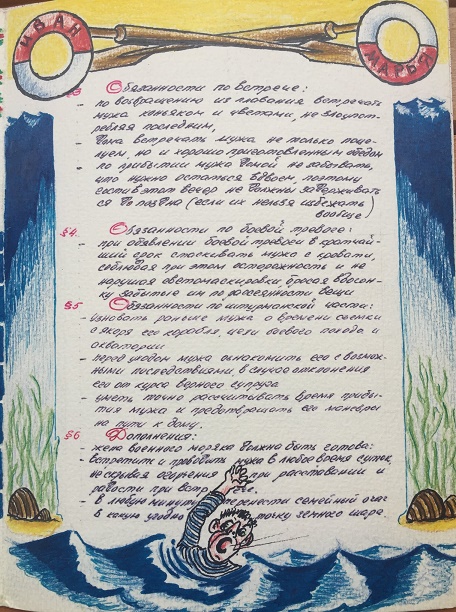 ИВАН
МАРЬЯ
Обязанности по встрече:
- по возвращению из плавания встречать
мужа коньяком и цветами, не злоупот-
ребляя последним,
- Дома встречать мужа не только поце-
луем, но и хорошо приготовленным обедом
- по прибытии мужа домой не забывать,
что нужно остаться вдвоем, поэтому
гости в этот вечер не должны задерживать
ся до поздна (если их нельзя избежать
вообще)
§4. Обязанности по боевой тревоге:
- при объявлении боевой тревоги в кратчай-
ший срок стаскивать мужа с кровати,
соблюдая при этом осторожность и не
нарушая светомаскировки, бросая вдогон-
ку забытые им по рассеянности вещи
§5 Обязанности по штурманской части:
- узнавать раньше мужа о времени съемки
с якоря его корабля, цели боевого похода и
акватории
- перед уходом мужа ознакомить его с возмож-
ными последствиями, в случае отклонения
его от курса верного супруга
- уметь точно рассчитывать время прибы-
тия мужа и предотвращать его маневры
на пути к дому.
§6 Дополнения:
- жена военного моряка должна быть готова:
- встретить и проводить мужа в любое время суток,
не скрывая при расставании и
радости при
- в любую минуту семейный очаг
в какую угодно точку земного шара